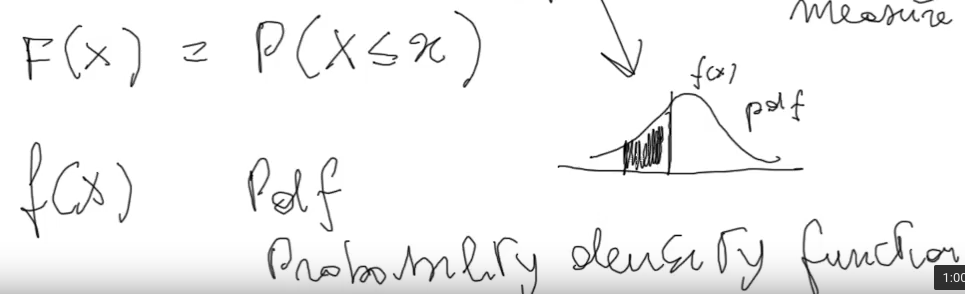 measure
F(x) = P(X ≤ x)
f(x)
pdf
f(x) Pdf
Probability density function
1:00